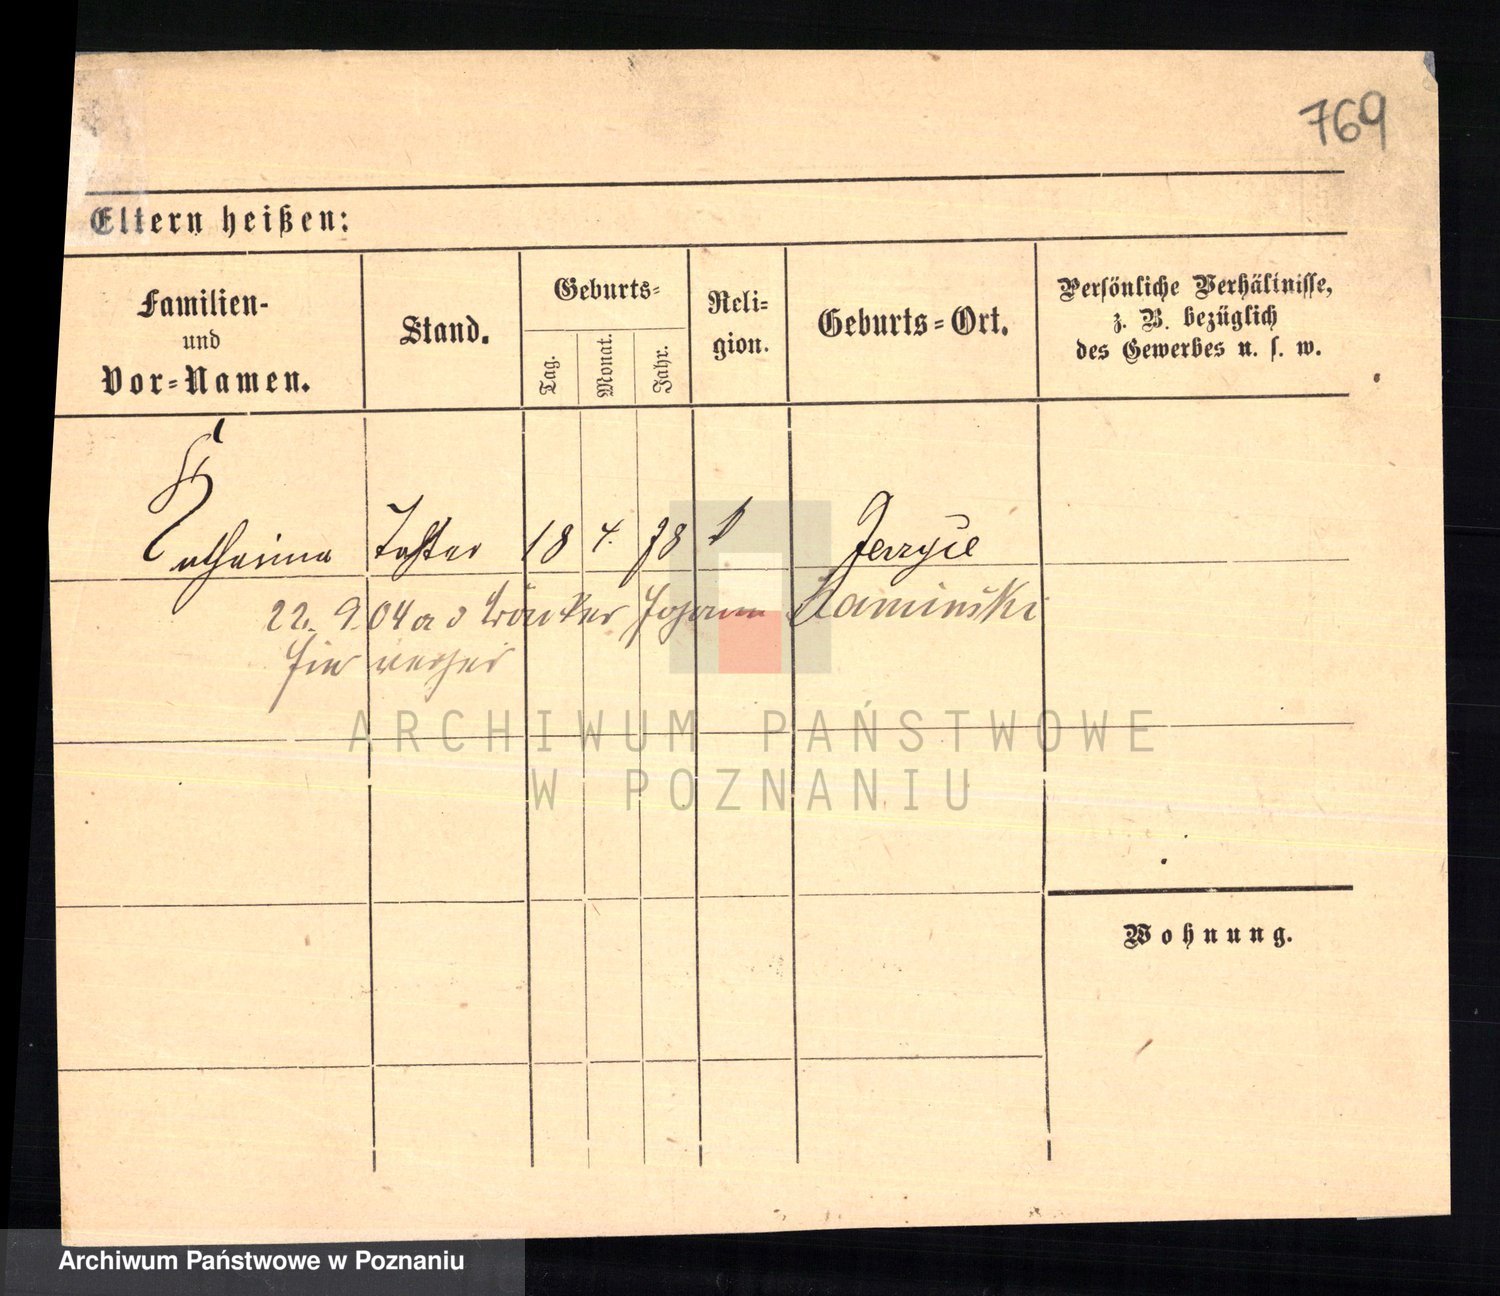 769
Eltern heißen:
Familien-
und
Vor-Namen.
Stand.
Geburts-
Tag.
Monat.
Jahr.
Reli-
gion.
Geburts-Ort.
Persönliche Verhältnisse,
z. B. bezüglich
des Gewerbes u. s. w.
Katharina Tochter 18 4. 78 Jerzyce
22. 9. 04 a d Johann Kaminski
hier
ARCHIWUM PAŃSTWOWE
W POZNANIU
Wohnung.
Archiwum Państwowe w Poznaniu